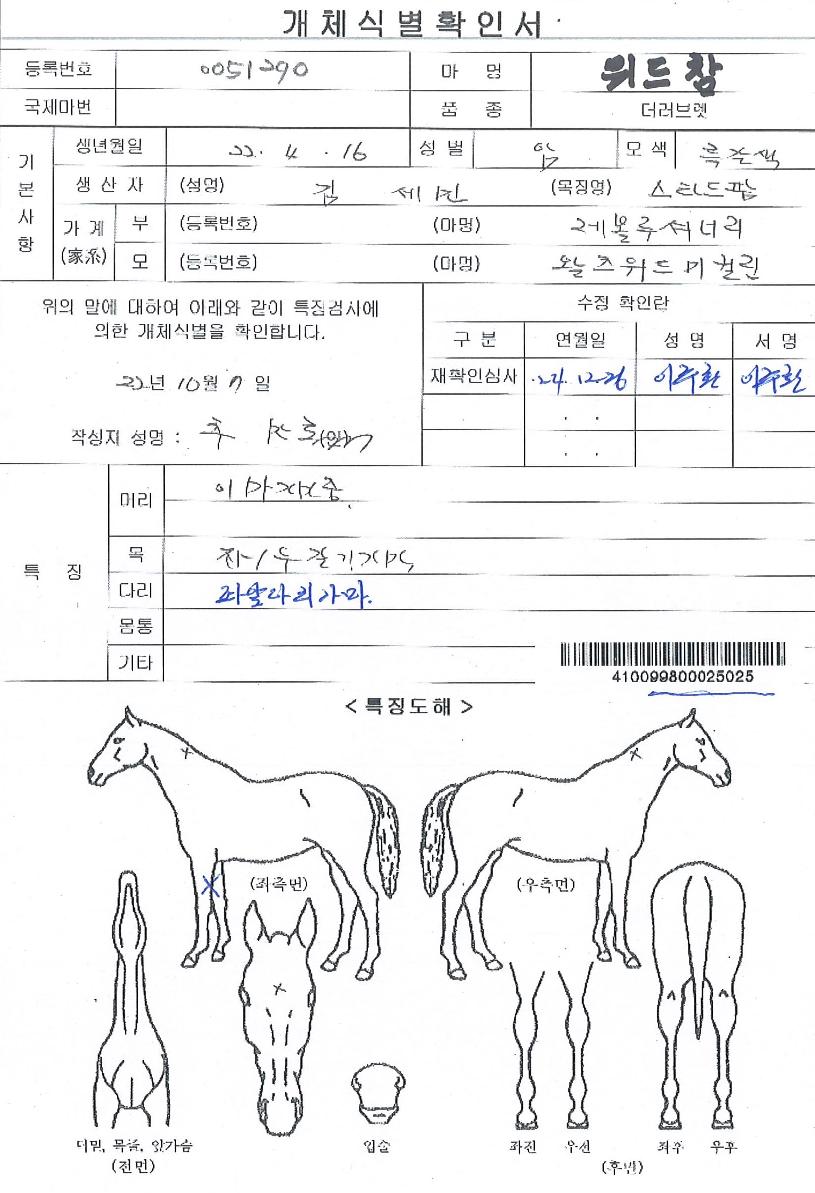 개체식별확인서
등록번호 0051290 마 명 위드참
국제마번 품 종 더러브렛
기본사항
생년월일 22. 4. 16 성별 암 모색 흑갈색
생산자 (성명) 김 세민 (목장명) 스타드팜
가계 (家系) 부 (등록번호) (마명) 레볼루셔너리
모 (등록번호) (마명) 올즈위드미컬린
위의 말에 대하여 아래와 같이 특징검사에
의한 개체식별을 확인합니다.
22년 10월 7일
작성자 성명 :
수정 확인란
구 분 연월일 성 명 서 명
재확인심사 24. 12. 26
특 징
머리
목
다리 좌앞다리가마.
몸통
기타
410099800025025
< 특징도해 >
(좌측면) (우측면)
더밑, 목줄, 앞가슴
(전면)
입술
좌전 우전 좌후 우후
(후면)